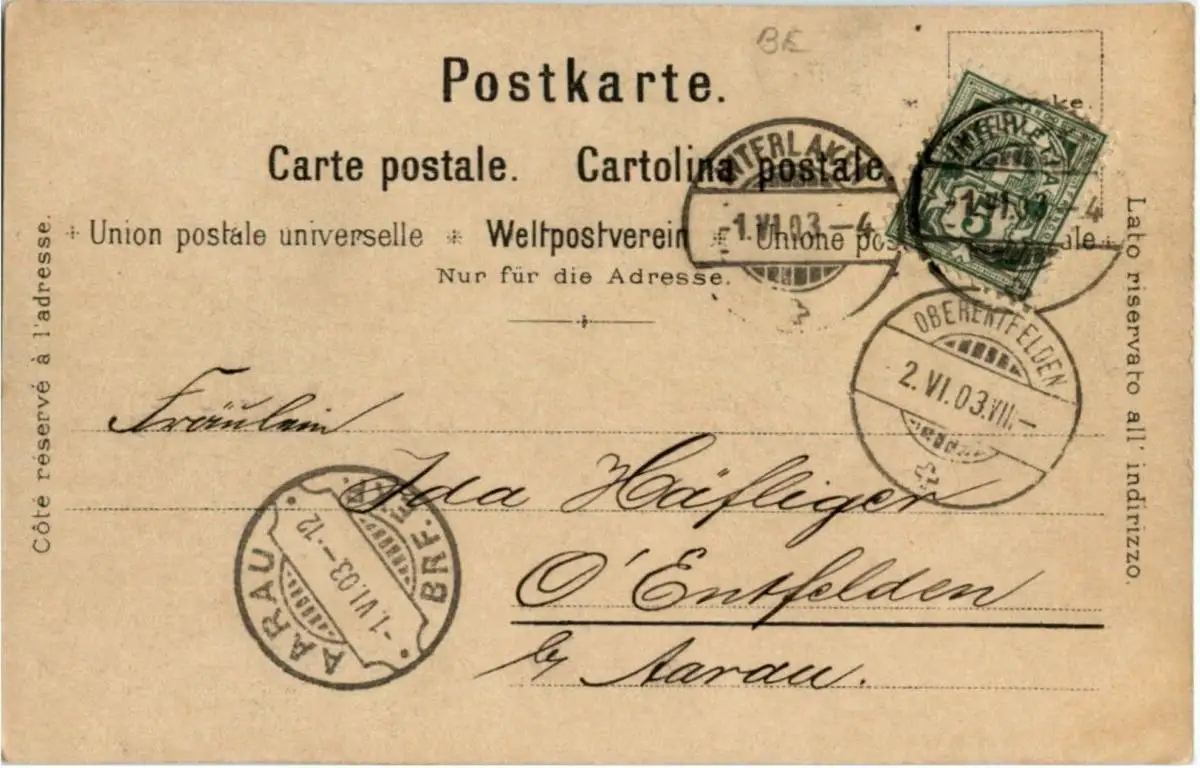 BE
Postkarte.
Carte postale. Cartolina postale.
Union postale universelle * Weltpostverein * Unione postale
Nur für die Adresse.
Côté réservé à l'adresse.
Lato riservato all' indirizzo.
INTERLAKEN
-1.VI.03.-4
INTERLAKEN
-1.VI.03.-4
5
OBERENTFELDEN
2.VI.03.VII.-
AARAU BRF.
-1.VI.03.-12
Fräulein
Ida Häfliger
O'Entfelden
by Aarau.